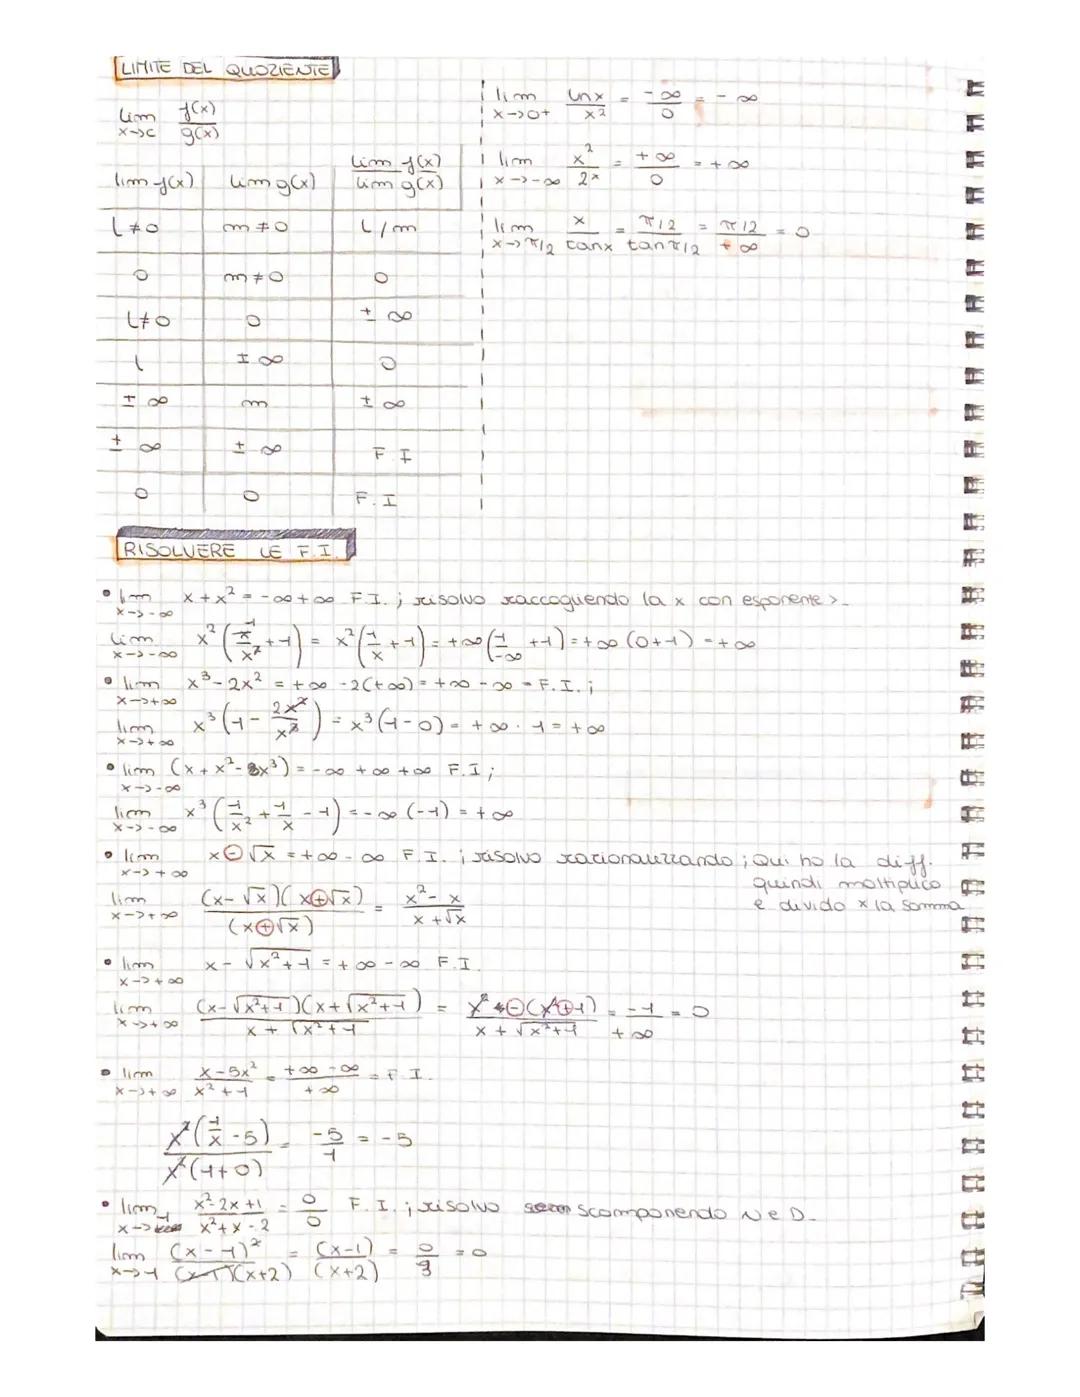 LIMITE DEL QUOZIENTE
lim x->c f(x)/g(x)
lim f(x) | lim g(x) | lim f(x)/lim g(x)
l≠0 | m≠0 | l/m
0 | m≠0 | 0
l≠0 | 0 | ±∞
l | ±∞ | 0
±∞ | m | ±∞
±∞ | ±∞ | F.I
0 | 0 | F.I
lim x->0+ lnx/x² = -∞/0 = -∞
lim x->-∞ x²/2ˣ = +∞/0 = +∞
lim x->π/2 x/tanx = π/2/tanπ/2 = π/2/+∞ = 0
RISOLVERE LE F.I.
• lim x->-∞ x+x² = -∞+∞ F.I.; risolvo raccogliendo la x con esponente >.
lim x->-∞ x²(x/x²+1) = x²(1/x+1) = +∞(1/-∞+1) = +∞(0+1) = +∞
• lim x->+∞ x³-2x² = +∞-2(+∞) = +∞-∞ = F.I.;
lim x->+∞ x³(1-2x²/x³) = x³(1-0) = +∞·1 = +∞
• lim x->-∞ (x+x²-x³) = -∞+∞+∞ F.I;
lim x->-∞ x³(1/x²+1/x-1) = -∞(-1) = +∞
• lim x->+∞ x-√x = +∞-∞ F.I.; risolvo razionalizzando; Qui ho la diff.
quindi moltiplico
e divido x la somma
lim x->+∞ (x-√x)(x+√x)/(x+√x) = x²-x/x+√x
• lim x->+∞ x-√x²+1 = +∞-∞ F.I.
lim x->+∞ (x-√x²+1)(x+√x²+1)/x+√x²+1 = x²-(x²+1)/x+√x²+1 = -1/+∞ = 0
• lim x->+∞ x-5x²/x²+1 = +∞-∞/+∞ = F.I.
x²(1/x-5)/x²(1+0) = -5/1 = -5
• lim x->1 x²-2x+1/x²+x-2 = 0/0 F.I.; risolvo scomponendo N e D.
lim x->1 (x-1)²/(x-1)(x+2) = (x-1)/(x+2) = 0/3 = 0